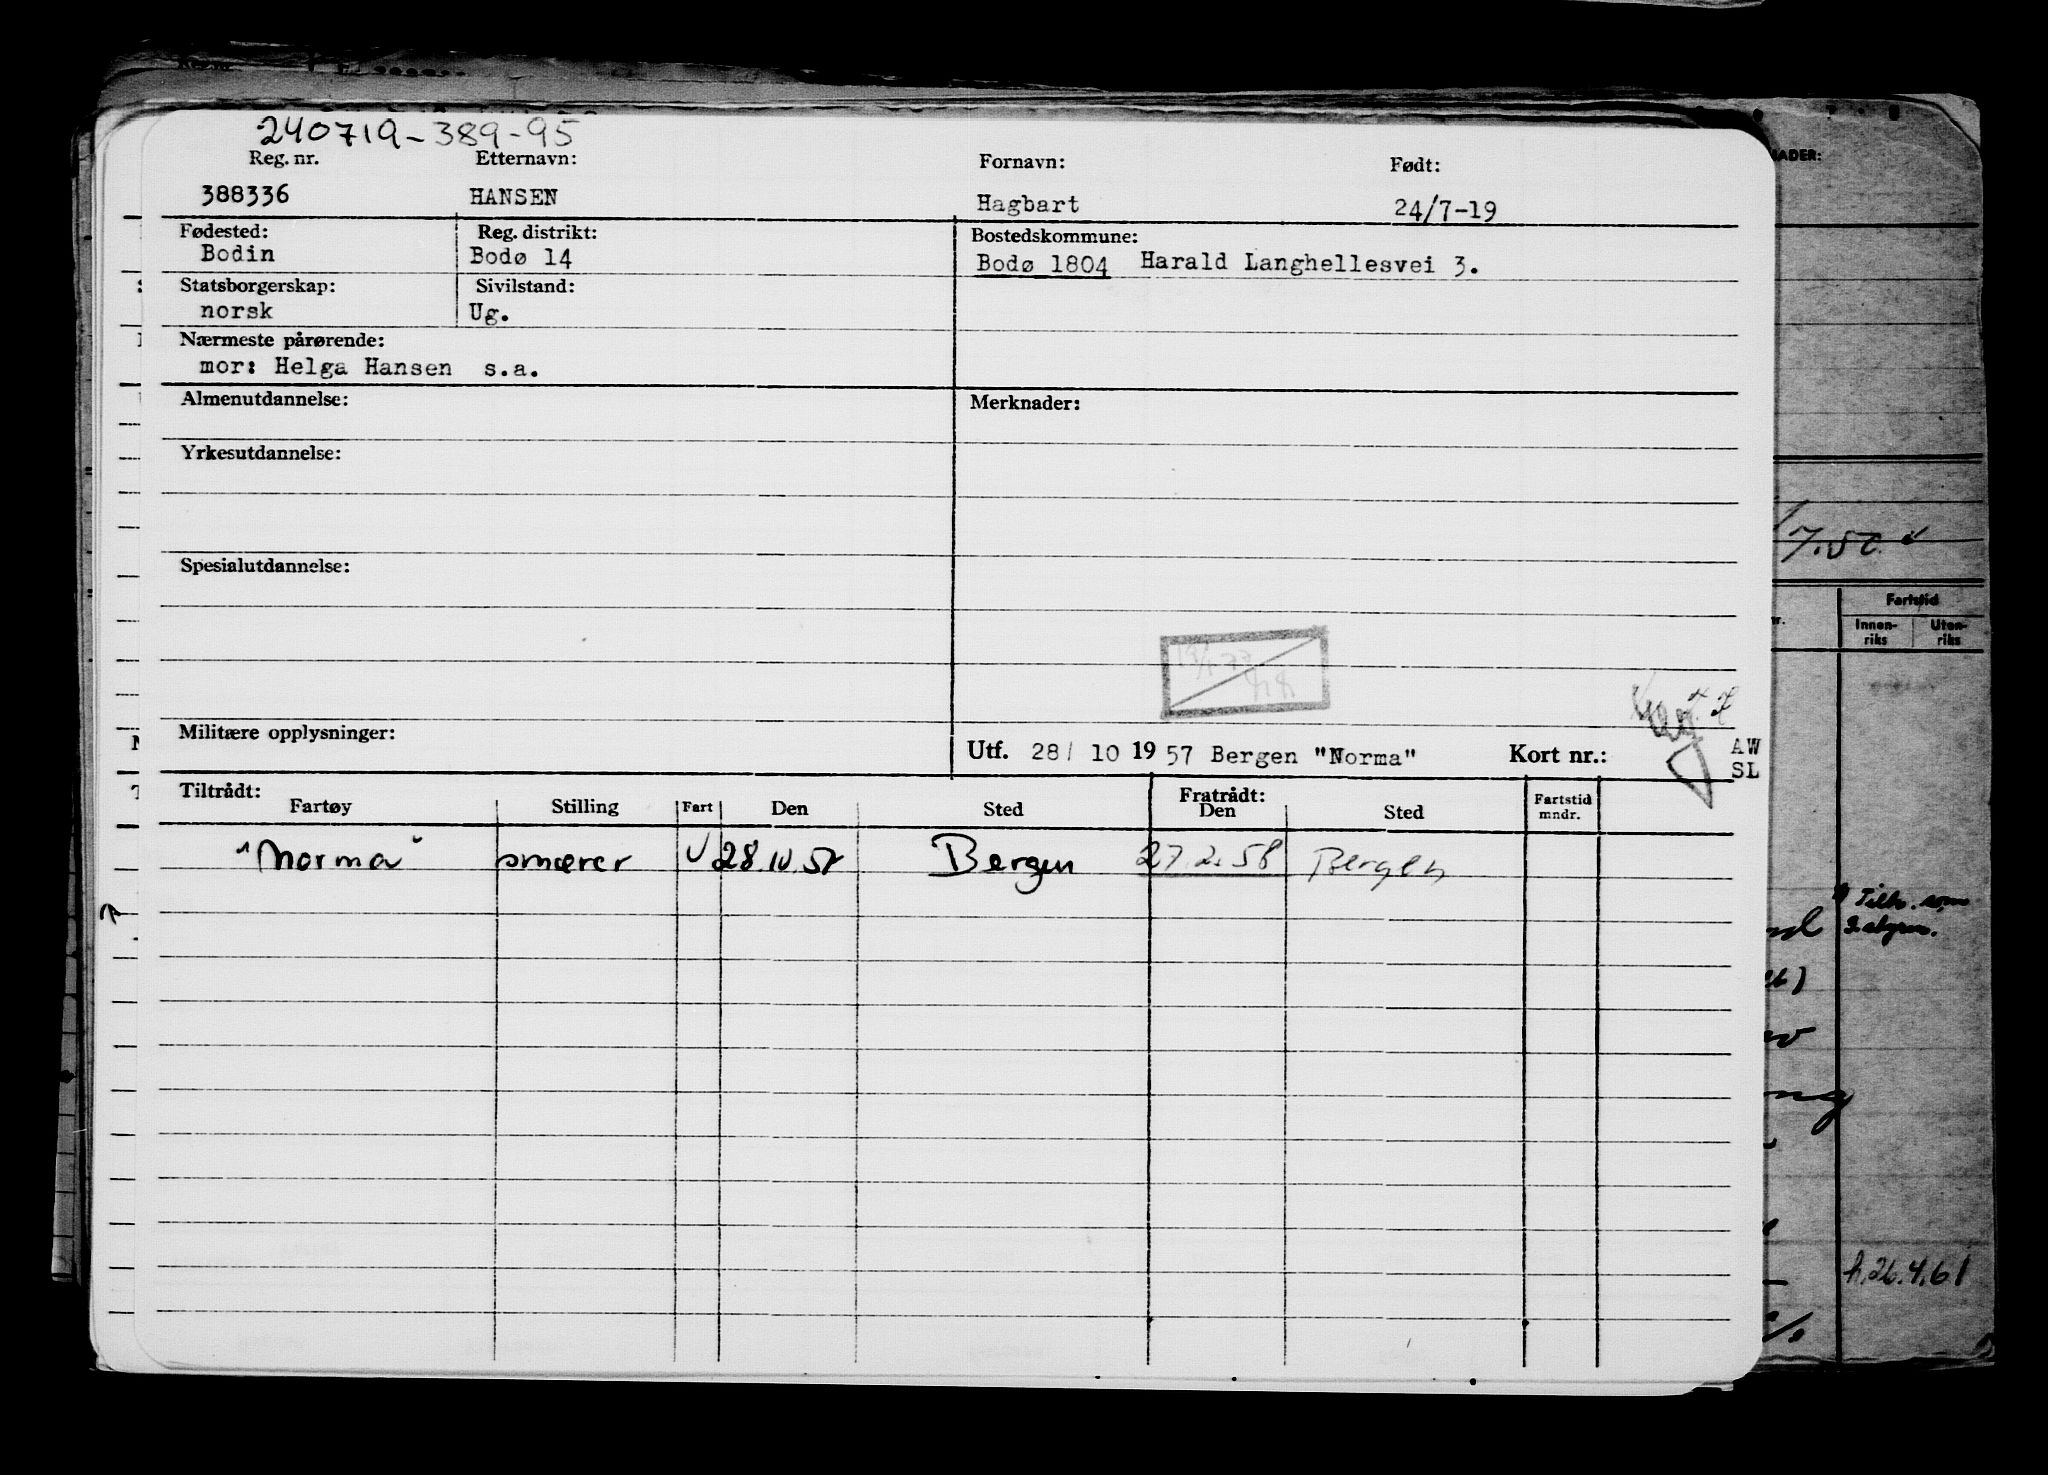 240719-389-95
Reg. nr. Etternavn: Fornavn: Født:
388336 HANSEN Hagbart 24/7-19
Fødested: Reg. distrikt: Bostedskommune:
Bodin Bodø 14 Bodø 1804 Harald Langhellesvei 3.
Statsborgerskap: Sivilstand:
norsk Ug.
Nærmeste pårørende:
mor: Helga Hansen s.a.
Almenutdannelse: Merknader:
Yrkesutdannelse:
Spesialutdannelse:
Militære opplysninger: Utf. 28/ 10 19 57 Bergen "Norma" Kort nr.: AW
SL
Tiltrådt: Fratrådt:
Fartøy Stilling Fart Den Sted Den Sted Fartstid mndr.
"Norma" smører U 28.10.57 Bergen 27.2.58 Bergen
NADER:
Fartstid
Innen-riks Uten-riks
Tilk. som
h.26.4.61